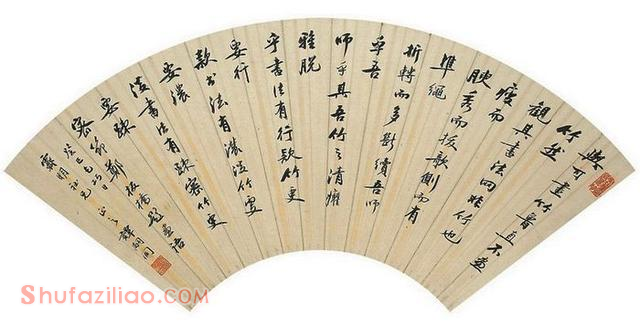 與可畫竹魯直不畫
竹然
觀其書法罔非竹也
瘦而
腴秀而拔欹側而有
準繩
折轉而多斷續吾師
乎吾
師乎其吾竹之清癯
雅脫
乎書法有行款竹更
要行
款書法有濃淡竹更
要濃
淡書法有疎密竹更
要疎
密節鄭板橋題畫語
癸巳
明社兄正之 譚嗣同
Shufaziliao.COM